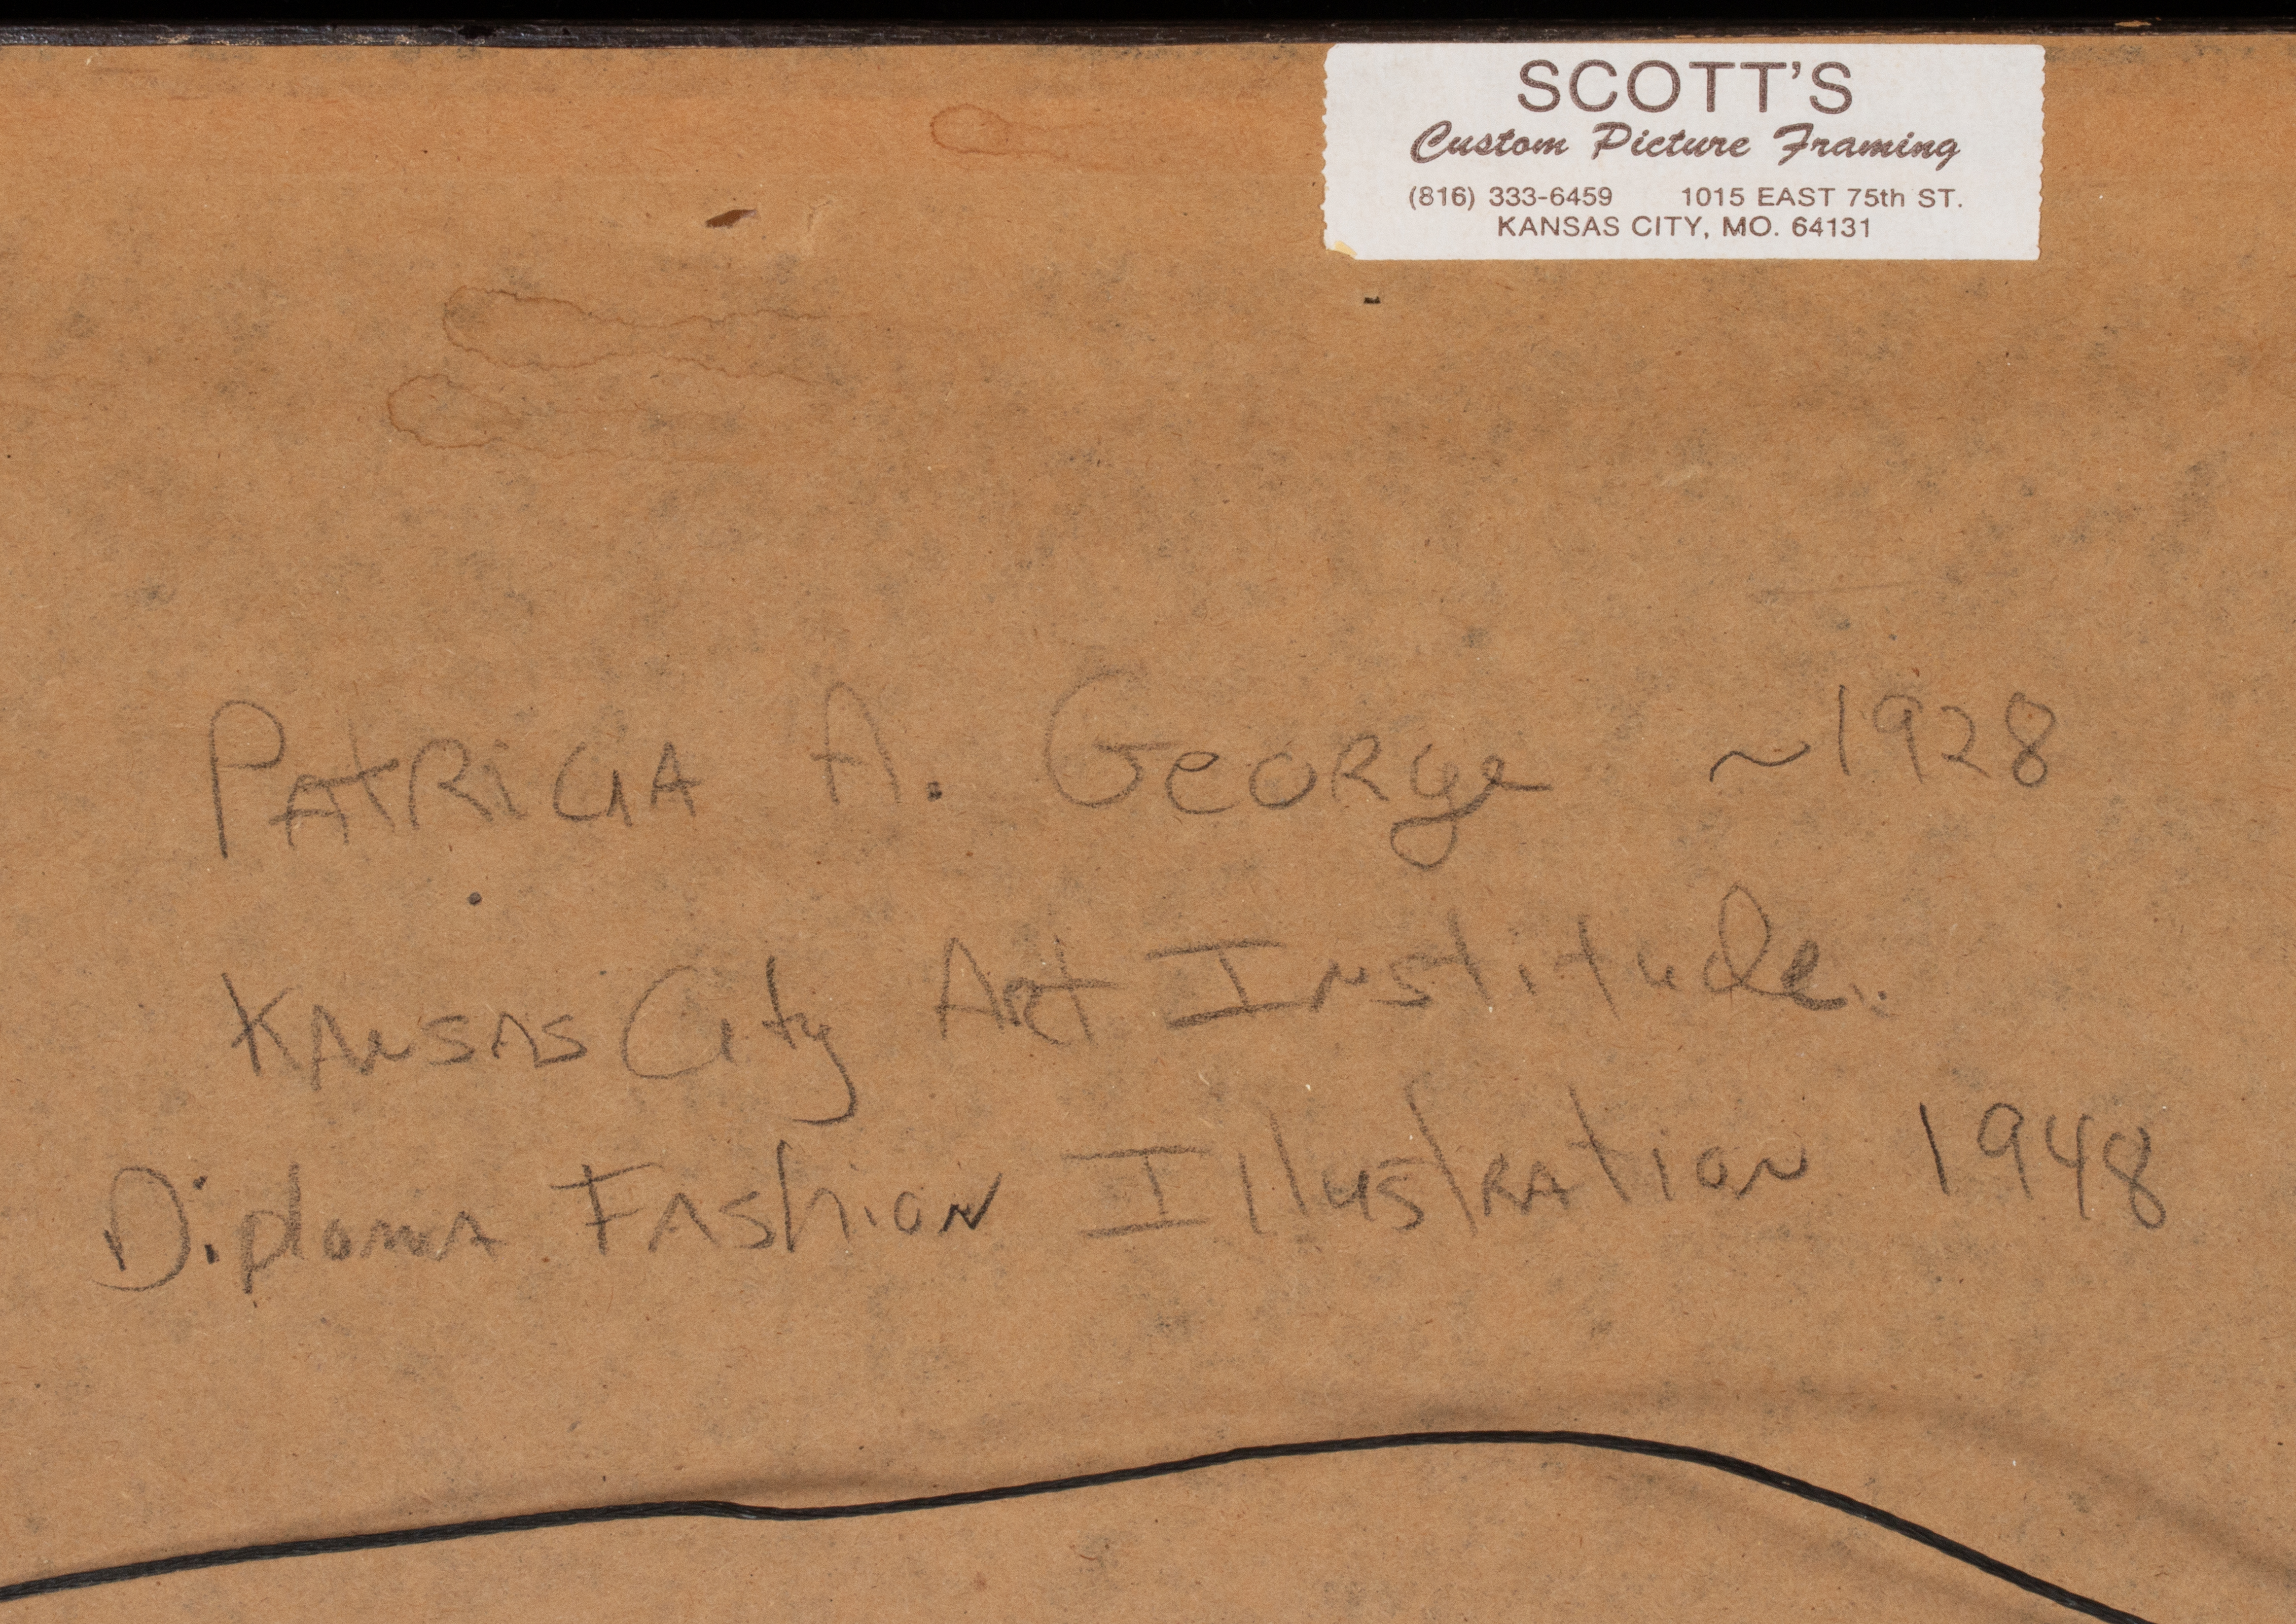 SCOTT'S
Custom Picture Framing
(816) 333-6459 1015 EAST 75th ST.
KANSAS CITY, MO. 64131
PAtRiciA A. GeORge ~1928
KANSAS City ARt INstitude.
DiplomA FAShioN IllustRAtioN 1948